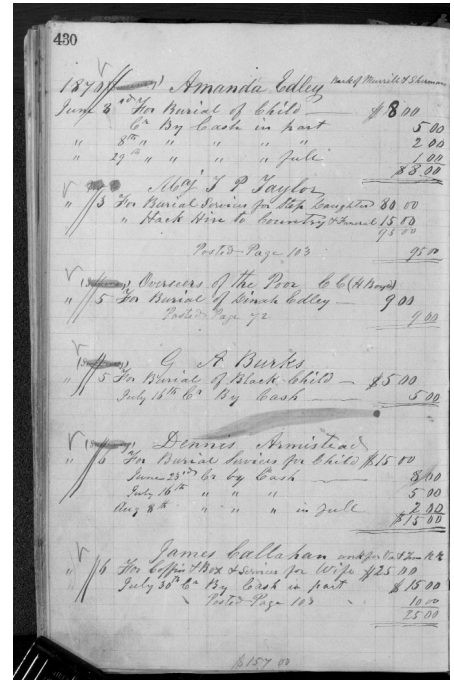 430
1870 Amanda Edley Back of Murrill & Sherman
June 3rd For Burial of Child $8 00
Cr By Cash in part 5 00
" 8th " " " " " 2 00
" 29th " " " " full 1 00
$8 00
Maj T P Taylor
" 3 For Burial Services for Step Daughter 80 00
" Hack Hire to Country & Funeral 15 00
95 00
Posted Page 103 95 00
Overseers of the Poor C C
" 5 For Burial of Dinah Edley 9 00
Posted Page 72 9 00
G A Burks
" 5 For Burial of Black Child $5 00
July 16th Cr By Cash 5 00
Dennis Armistead
" 6 For Burial Services for Child $15 00
June 23rd Cr by Cash 8 00
July 16th " " " 5 00
Aug 8th " " " in full 2 00
$15 00
James Callahan
" 6 For Coffin & Box & Services for Wife $25 00
July 30th Cr By Cash in part $15 00
Posted Page 103 10 00
25 00
$157 00